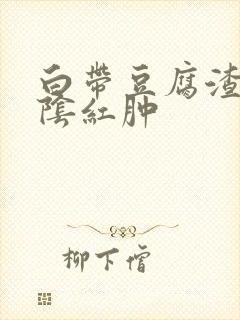 白帶豆腐渣
陰紅肿
柳下僧